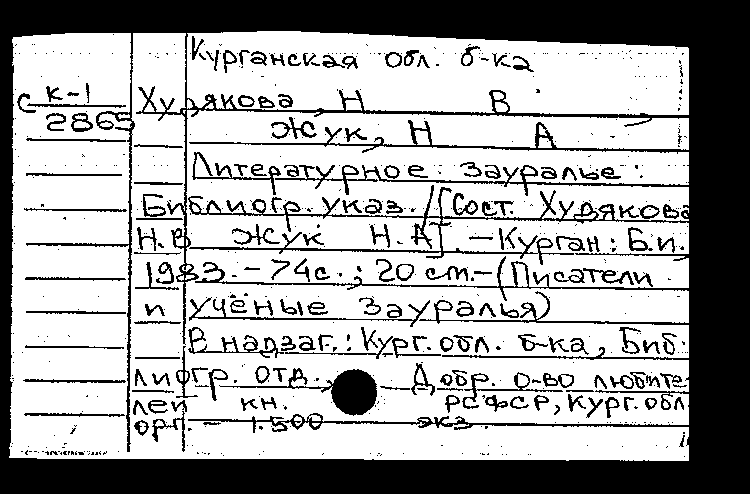 Курганская обл. б-ка
С К-1
2865
Худякова, Н В
Жук, Н А
Литературное Зауралье:
Библиогр. указ. /[Сост. Худякова
Н.В Жук Н.А]. – Курган: Б.и.,
1983. – 74с.; 20 см. – (Писатели
и учёные Зауралья)
В надзаг.: Кург. обл. б-ка, Биб-
лиогр. отд., Добр. о-во любите-
лей кн. РСФСР, Кург. обл.
орг. – 1.500 экз.